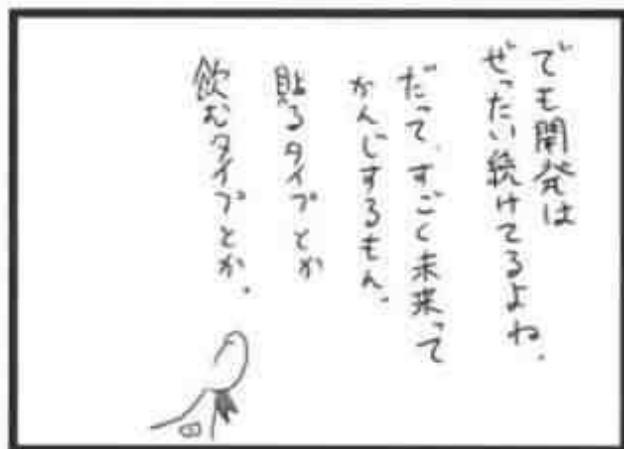 でも開発は
ぜったい続けてるよね、
だって、すごく未来って
かんじするもん、
貼るタイプとか
飲むタイプとか、